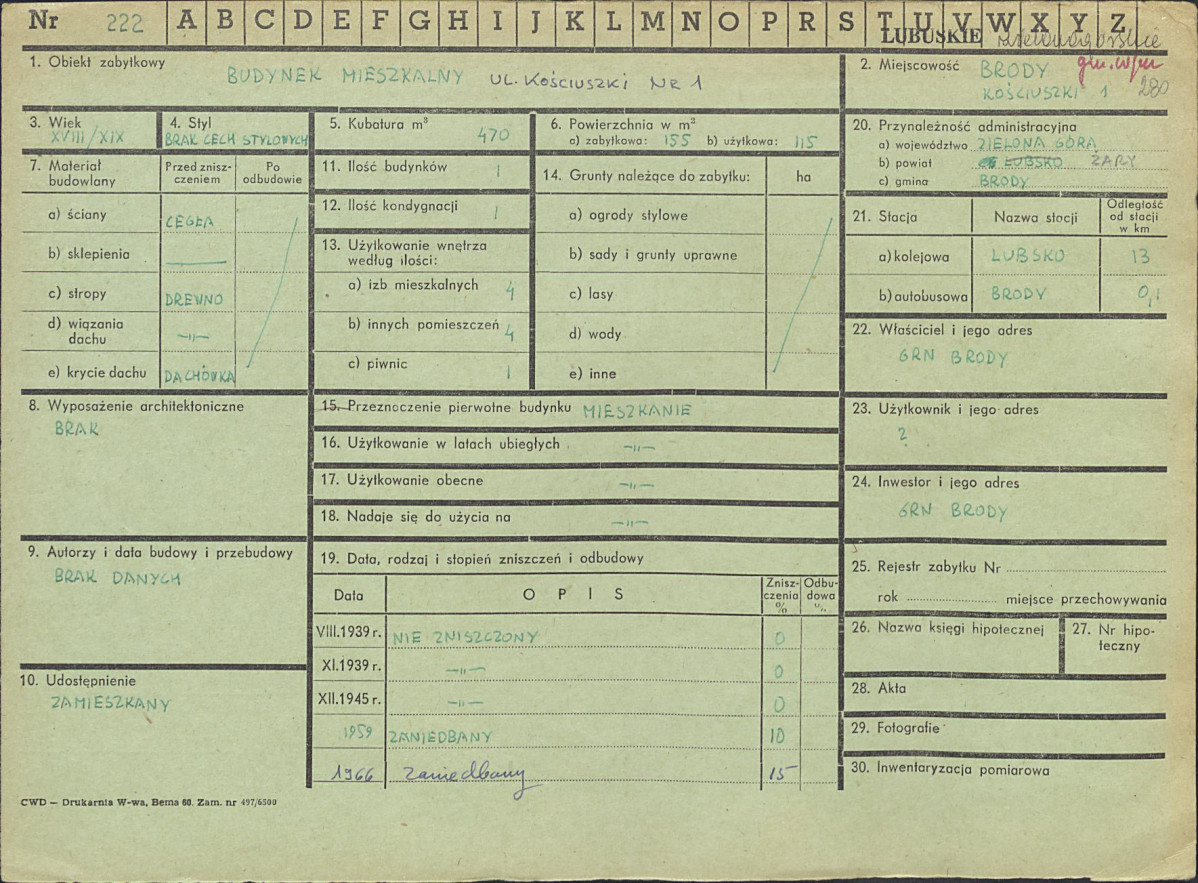 Nr 222 A B C D E F G H I J K L M N O P R S T U V W X Y Z
LUBUSKIE
1. Obiekt zabytkowy
BUDYNEK MIESZKALNY UL. KOŚCIUSZKI NR 1
2. Miejscowość BRODY
KOŚCIUSZKI 1 280
3. Wiek
XVIII/XIX
4. Styl
BRAK CECH STYLOWYCH
5. Kubatura m³
470
6. Powierzchnia w m²
a) zabytkowa: 155 b) użytkowa: 115
7. Materiał budowlany
Przed znisz-
czeniem
Po
odbudowie
a) ściany CEGŁA
b) sklepienia ———
c) stropy DREWNO
d) wiązania
dachu —„—
e) krycie dachu DACHÓWKA
8. Wyposażenie architektoniczne
BRAK
9. Autorzy i data budowy i przebudowy
BRAK DANYCH
10. Udostępnienie
ZAMIESZKANY
11. Ilość budynków 1
12. Ilość kondygnacji 1
13. Użytkowanie wnętrza
według ilości:
a) izb mieszkalnych 4
b) innych pomieszczeń 4
c) piwnic 1
14. Grunty należące do zabytku: ha
a) ogrody stylowe
b) sady i grunty uprawne
c) lasy
d) wody
e) inne
15. Przeznaczenie pierwotne budynku MIESZKANIE
16. Użytkowanie w latach ubiegłych —„—
17. Użytkowanie obecne —„—
18. Nadaje się do użycia na —„—
19. Data, rodzaj i stopień zniszczeń i odbudowy
Data OPIS
Znisz-
czenia
%
Odbu-
dowa
%
VIII.1939 r. NIE ZNISZCZONY 0
XI.1939 r. —„— 0
XII.1945 r. —„— 0
1959 ZANIEDBANY 10
1966 zaniedbany 15
20. Przynależność administracyjna
a) województwo ZIELONA GÓRA
b) powiat LUBSKO ŻARY
c) gmina BRODY
21. Stacja Nazwa stacji
Odległość
od stacji
w km
a) kolejowa LUBSKO 13
b) autobusowa BRODY 0,1
22. Właściciel i jego adres
GRN BRODY
23. Użytkownik i jego adres
?
24. Inwestor i jego adres
GRN BRODY
25. Rejestr zabytku Nr
rok miejsce przechowywania
26. Nazwa księgi hipotecznej
27. Nr hipo-
teczny
28. Akta
29. Fotografie
30. Inwentaryzacja pomiarowa
CWD — Drukarnia W-wa, Bema 60. Zam. nr 497/6500